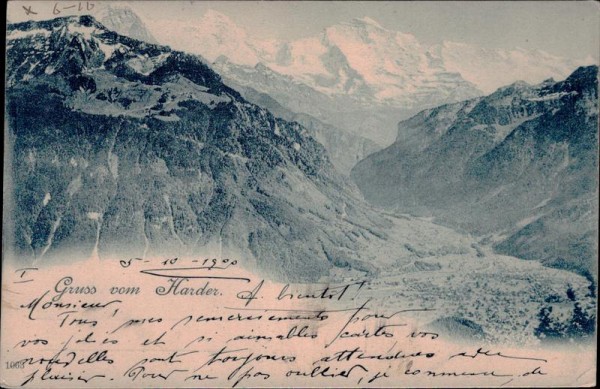 × 6-16
5-10-1900
I
Gruss vom Harder.
A bientôt
Monsieur,
Tous mes remerciements pour
vos jolies et si aimables cartes vos
nouvelles sont toujours attendues avec
1003
plaisir. Pour ne pas oublier, je commence de